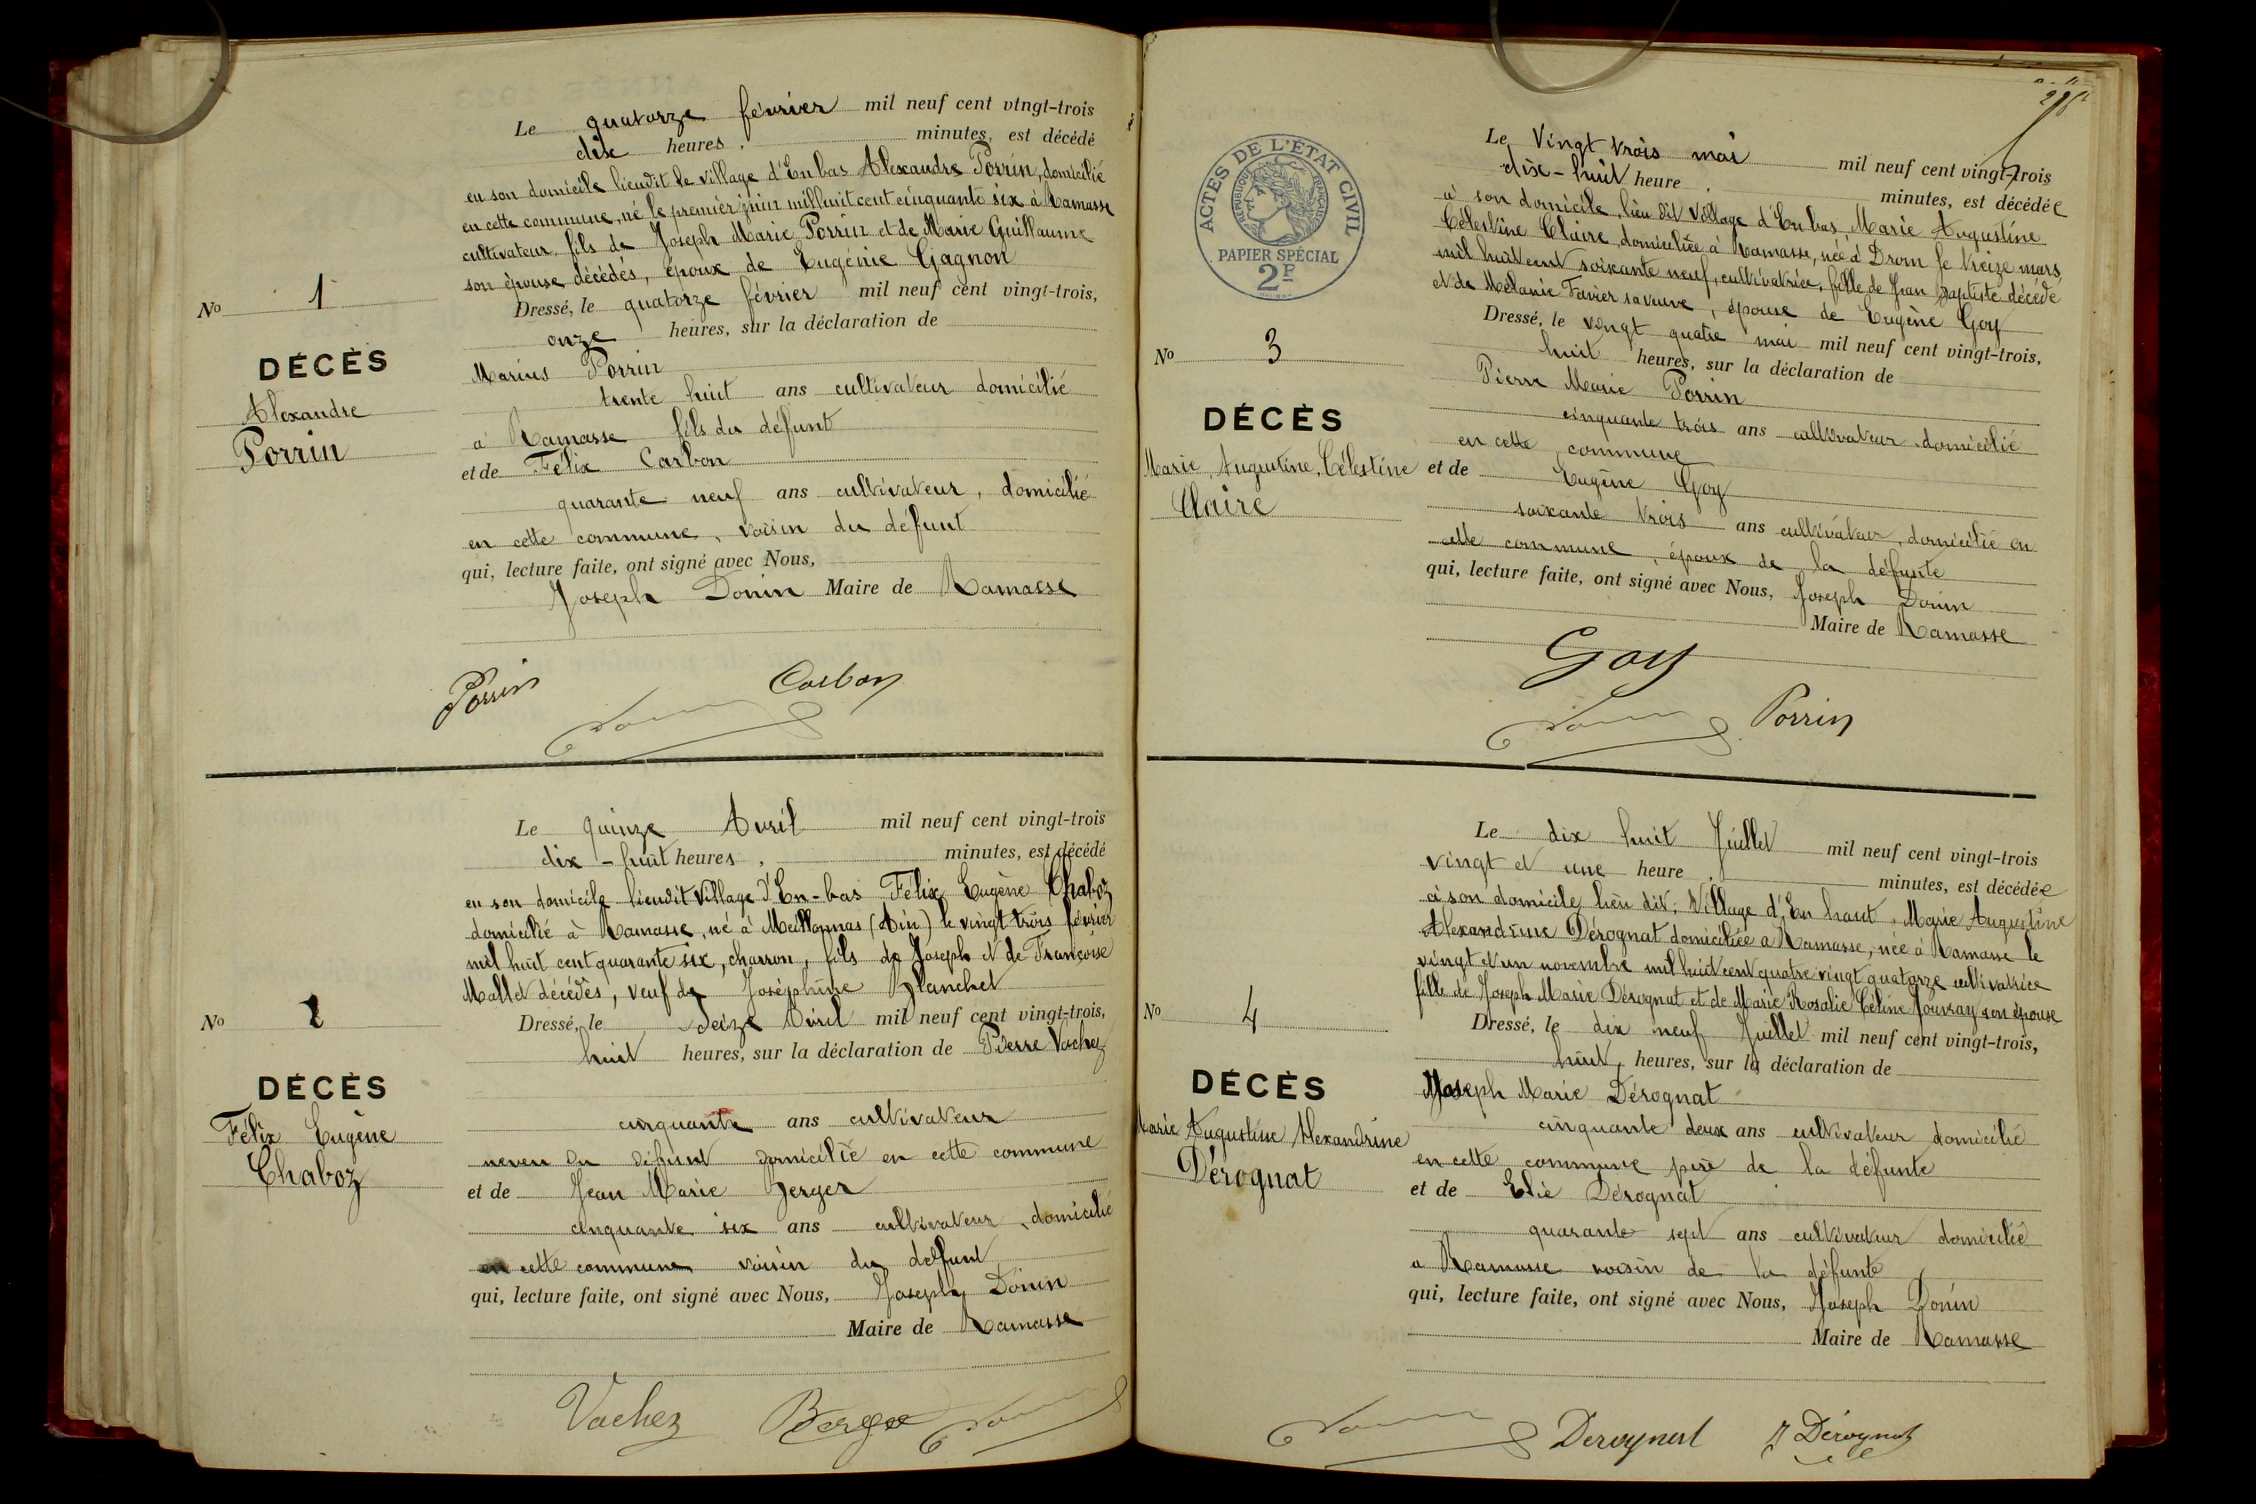 Le quatorze février mil neuf cent vingt-trois
dix heures, minutes, est décédé
en son domicile lieudit le village d'En bas Alexandre Porrin, domicilié
en cette commune, né le premier juin mil huit cent cinquante six à Ramasse
cultivateur, fils de Joseph Marie Porrin et de Marie Guillaume
son épouse décédés, époux de Eugénie Gagnon
Dressé, le quatorze février mil neuf cent vingt-trois,
onze heures, sur la déclaration de
Marius Porrin
trente huit ans cultivateur domicilié
à Ramasse fils du défunt
et de Félix Carbon
quarante neuf ans cultivateur, domicilié
en cette commune, voisin du défunt
qui, lecture faite, ont signé avec Nous,
Joseph Donin Maire de Ramasse
No 1
DÉCÈS
Alexandre
Porrin
Porrin Carbon
Le quinze Avril mil neuf cent vingt-trois
dix-huit heures, minutes, est décédé
en son domicile lieudit village d'En-bas Félix Eugène Chaboz
domicilié à Ramasse, né à Meillonnas (Ain) le vingt trois février
mil huit cent quarante six, charron, fils de Joseph et de Françoise
Mallet décédés, veuf de Joséphine Blanchet
Dressé, le seize Avril mil neuf cent vingt-trois,
huit heures, sur la déclaration de Pierre Vachez
cinquante ans cultivateur
neveu du défunt domicilié en cette commune
et de Jean Marie Berger
cinquante six ans cultivateur, domicilié
en cette commune voisin du défunt
qui, lecture faite, ont signé avec Nous, Joseph Donin
Maire de Ramasse
No 2
DÉCÈS
Félix Eugène
Chaboz
Vachez Berger
ACTES DE L'ÉTAT CIVIL
RÉPUBLIQUE FRANÇAISE
PAPIER SPÉCIAL
2F
Le Vingt trois mai mil neuf cent vingt-trois
dix-huit heure, minutes, est décédée
à son domicile, lieu dit Village d'En bas, Marie Augustine
Célestine Claire, domiciliée à Ramasse, née à Drom le treize mars
mil huit cent soixante neuf, cultivatrice, fille de Jean Baptiste décédé
et de Mélanie Favier sa veuve, épouse de Eugène Goy
Dressé, le vingt quatre mai mil neuf cent vingt-trois,
huit heures, sur la déclaration de
Pierre Marie Porrin
cinquante trois ans cultivateur domicilié
en cette commune
et de Eugène Goy
soixante trois ans cultivateur, domicilié en
cette commune, époux de la défunte
qui, lecture faite, ont signé avec Nous, Joseph Donin
Maire de Ramasse
No 3
DÉCÈS
Marie, Augustine, Célestine
Claire
Goy
Porrin
Le dix huit Juillet mil neuf cent vingt-trois
vingt et une heure, minutes, est décédée
à son domicile, lieu dit, Village d'En haut, Marie Augustine
Alexandrine Dérognat domiciliée à Ramasse, née à Ramasse le
vingt et un novembre mil huit cent quatre vingt quatorze cultivatrice
fille de Joseph Marie Dérognat et de Marie Rosalie Céline Jouvray son épouse
Dressé, le dix neuf Juillet mil neuf cent vingt-trois,
huit, heures, sur la déclaration de
Joseph Marie Dérognat
cinquante deux ans cultivateur domicilié
en cette commune père de la défunte
et de Elie Dérognat
quarante sept ans cultivateur domicilié
à Ramasse voisin de la défunte
qui, lecture faite, ont signé avec Nous, Joseph Donin
Maire de Ramasse
No 4
DÉCÈS
Marie Augustine Alexandrine
Dérognat
Derognat Dérognat